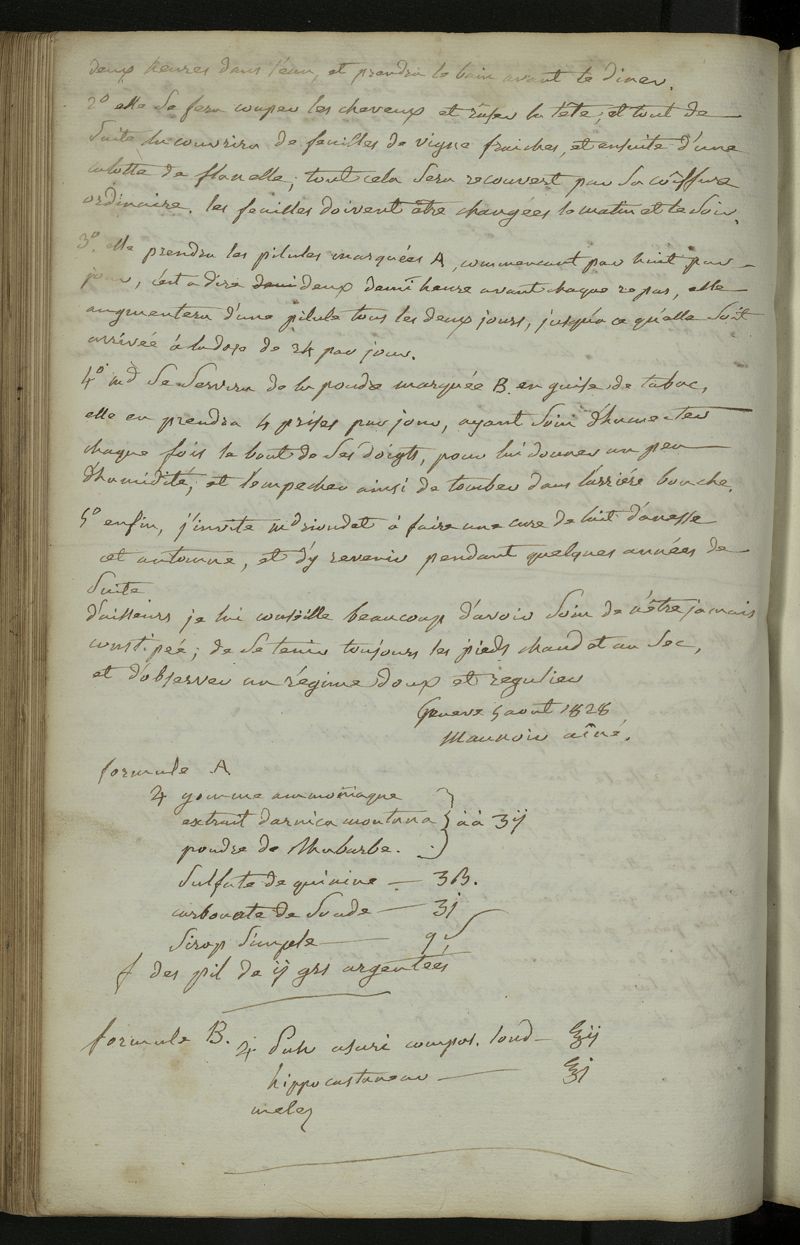 deux heures dans l'eau, et prendra le bain avant le diner.
2º elle se fera couper les cheveux et raser la tête; et tout de
suite la couvrira de feuilles de vigne fraiches, et ensuite d'une
calotte de flanelle; tout cela sera recouvert par sa coiffure
ordinaire. les feuilles doivent être changées le matin et le soir.
3º. elle prendra les pilules marquées A, commencant par huit par
jour, c'est a dire deux demi heure avant chaque repas, elle
augmentera d'une pilule tous les deux jours, jusqu'a ce qu'elle soit
arrivée à la dose de 24 par jour.
4º md se servira de la poudre marquée B. en guise de tabac,
elle en prendra 4 prises par jour, ayant soin d'humecter
chaque fois le bout de ses doigts, pour lui donner un peu
d'humidité, et l'empecher ainsi de tomber dans l'arriére bouche.
5º enfin, j'invite md riondet à faire une cure de lait d'anesse
cet automne, et d'y revenir pendant quelques années de
suite.
d'ailleurs je lui conseille beaucoup d'avoir soin de n'être jamais
constipée; de se tenir toujours les pieds chaud et au sec,
et d'observer un régime doux et regulier
Geneve 5 aout 1828
Maunoir aîné.
formule A
♃ gomme ammoniaque
extrait d'arnica montana } àà ʒij
poudre de Rhubarbe.
sulfate de quinine — ʒß.
carbonate de soude — ʒj
sirop simple — qs
f des pil de ij grs argentées
formule B.
♃ pulv asari compos. lond — ℥ij
hippocastanear — ℥j
melez